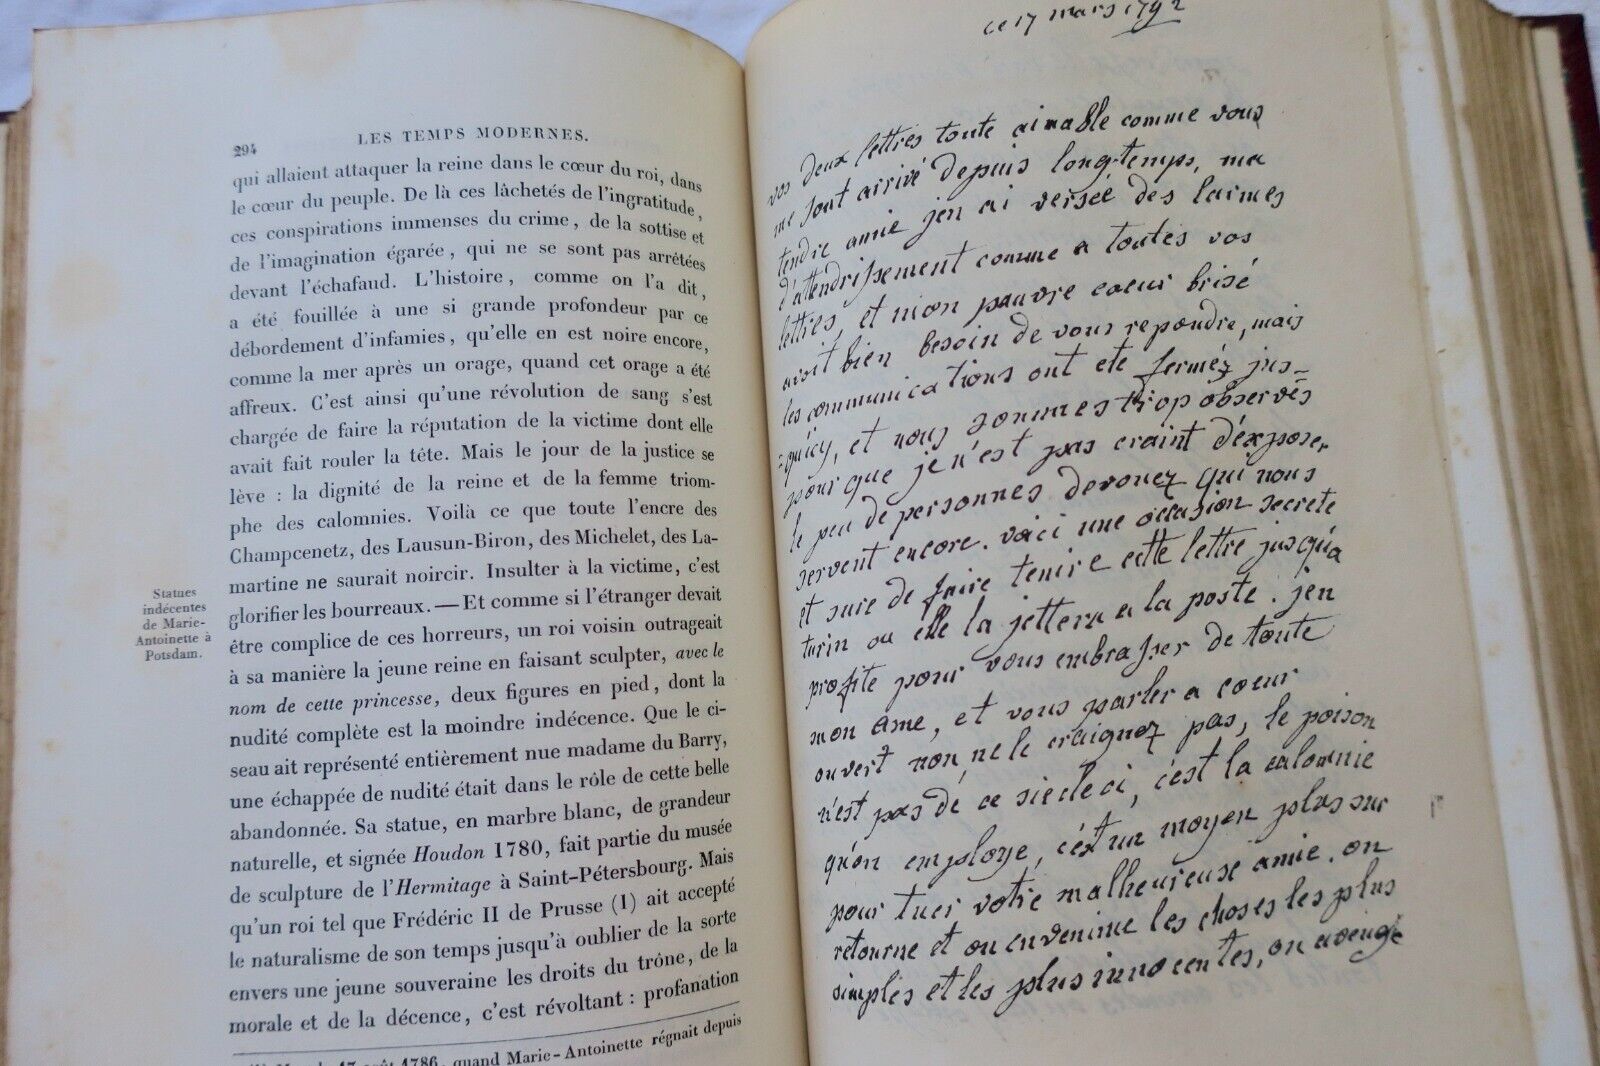 294
LES TEMPS MODERNES.
qui allaient attaquer la reine dans le cœur du roi, dans
le cœur du peuple. De là ces lâchetés de l'ingratitude,
ces conspirations immenses du crime, de la sottise et
de l'imagination égarée, qui ne se sont pas arrêtées
devant l'échafaud. L'histoire, comme on l'a dit,
a été fouillée à une si grande profondeur par ce
débordement d'infamies, qu'elle en est noire encore,
comme la mer après un orage, quand cet orage a été
affreux. C'est ainsi qu'une révolution de sang s'est
chargée de faire la réputation de la victime dont elle
avait fait rouler la tête. Mais le jour de la justice se
lève : la dignité de la reine et de la femme triom-
phe des calomnies. Voilà ce que toute l'encre des
Champcenetz, des Lausun-Biron, des Michelet, des La-
martine ne saurait noircir. Insulter à la victime, c'est
glorifier les bourreaux. — Et comme si l'étranger devait
être complice de ces horreurs, un roi voisin outrageait
à sa manière la jeune reine en faisant sculpter, avec le
nom de cette princesse, deux figures en pied, dont la
nudité complète est la moindre indécence. Que le ci-
seau ait représenté entièrement nue madame du Barry,
une échappée de nudité était dans le rôle de cette belle
abandonnée. Sa statue, en marbre blanc, de grandeur
naturelle, et signée Houdon 1780, fait partie du musée
de sculpture de l'Hermitage à Saint-Pétersbourg. Mais
qu'un roi tel que Frédéric II de Prusse (1) ait accepté
le naturalisme de son temps jusqu'à oublier de la sorte
envers une jeune souveraine les droits du trône, de la
morale et de la décence, c'est révoltant : profanation
17 août 1786, quand Marie-Antoinette régnait depuis
Statues
indécentes
de Marie-
Antoinette à
Potsdam.
ce 17 mars 1792
vos deux lettres toute aimable comme vous
me sont arrivé depuis long-temps, ma
tendre amie jen ai versée des larmes
d'attendrissement comme a toutes vos
lettres, et mon pauvre coeur brisé
avoit bien besoin de vous repondre, mais
les communications ont ete fermèz jus-
=qu'icy, et nous sommes trop observés
pour que je n'est pas craint d'éxposer
le peu de personnes devouez qui nous
servent encore. voici une occasion secrete
et sure de faire tenire cette lettre jusqu'a
turin ou elle la jettera a la poste. j'en
profite pour vous embrasser de toute
mon ame, et vous parler a coeur
ouvert non, ne le craignez pas, le poison
n'est pas dé ce siecle ci, c'est la calomnie
qu'on employe, c'est un moyen plus sur
pour tuer votre malheureuse amie. on
retourne et on envenime les choses les plus
simples et les plus innocentes, on aveugle